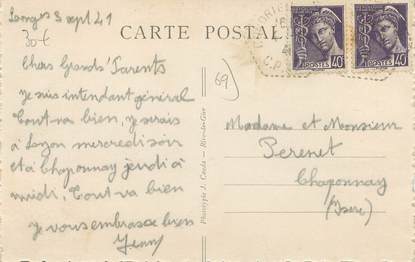 3 sept 41
CARTE POSTAL
30€
Chers Grands' Parents
Je suis intendant général
Tout va bien, je serais
à Lyon mercredi soir
et à Chaponnay jeudi à
midi, Tout va bien
Je vous embrasse bien
Jenny
59
Phototypie J. Cauda - Rive-de-Gier
POSTES 40
POSTES 40
Madame et Monsieur
Perenet
Chaponnay
(Isère)